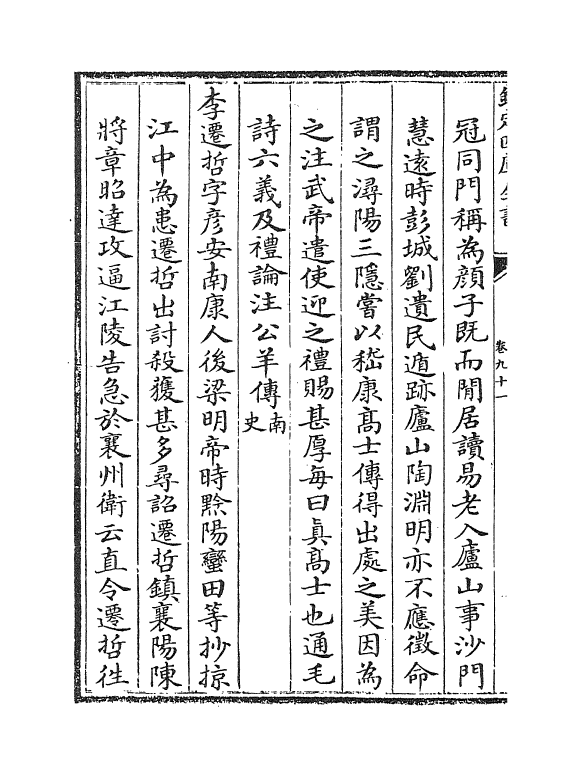 欽定四庫全書
卷九十一
冠同門稱為顔子既而閒居讀易老入廬山事沙門
慧遠時彭城劉遺民遁跡廬山陶淵明亦不應徵命
謂之潯陽三隱嘗以嵇康髙士傳得出處之美因為
之注武帝遣使迎之禮賜甚厚每曰眞髙士也通毛
詩六義及禮論注公羊傳南史
李遷哲字彦安南康人後梁明帝時黔陽蠻田等抄掠
江中為患遷哲出討殺獲甚多尋詔遷哲鎮襄陽陳
將章昭達攻逼江陵告急於襄州衛云直令遷哲徃